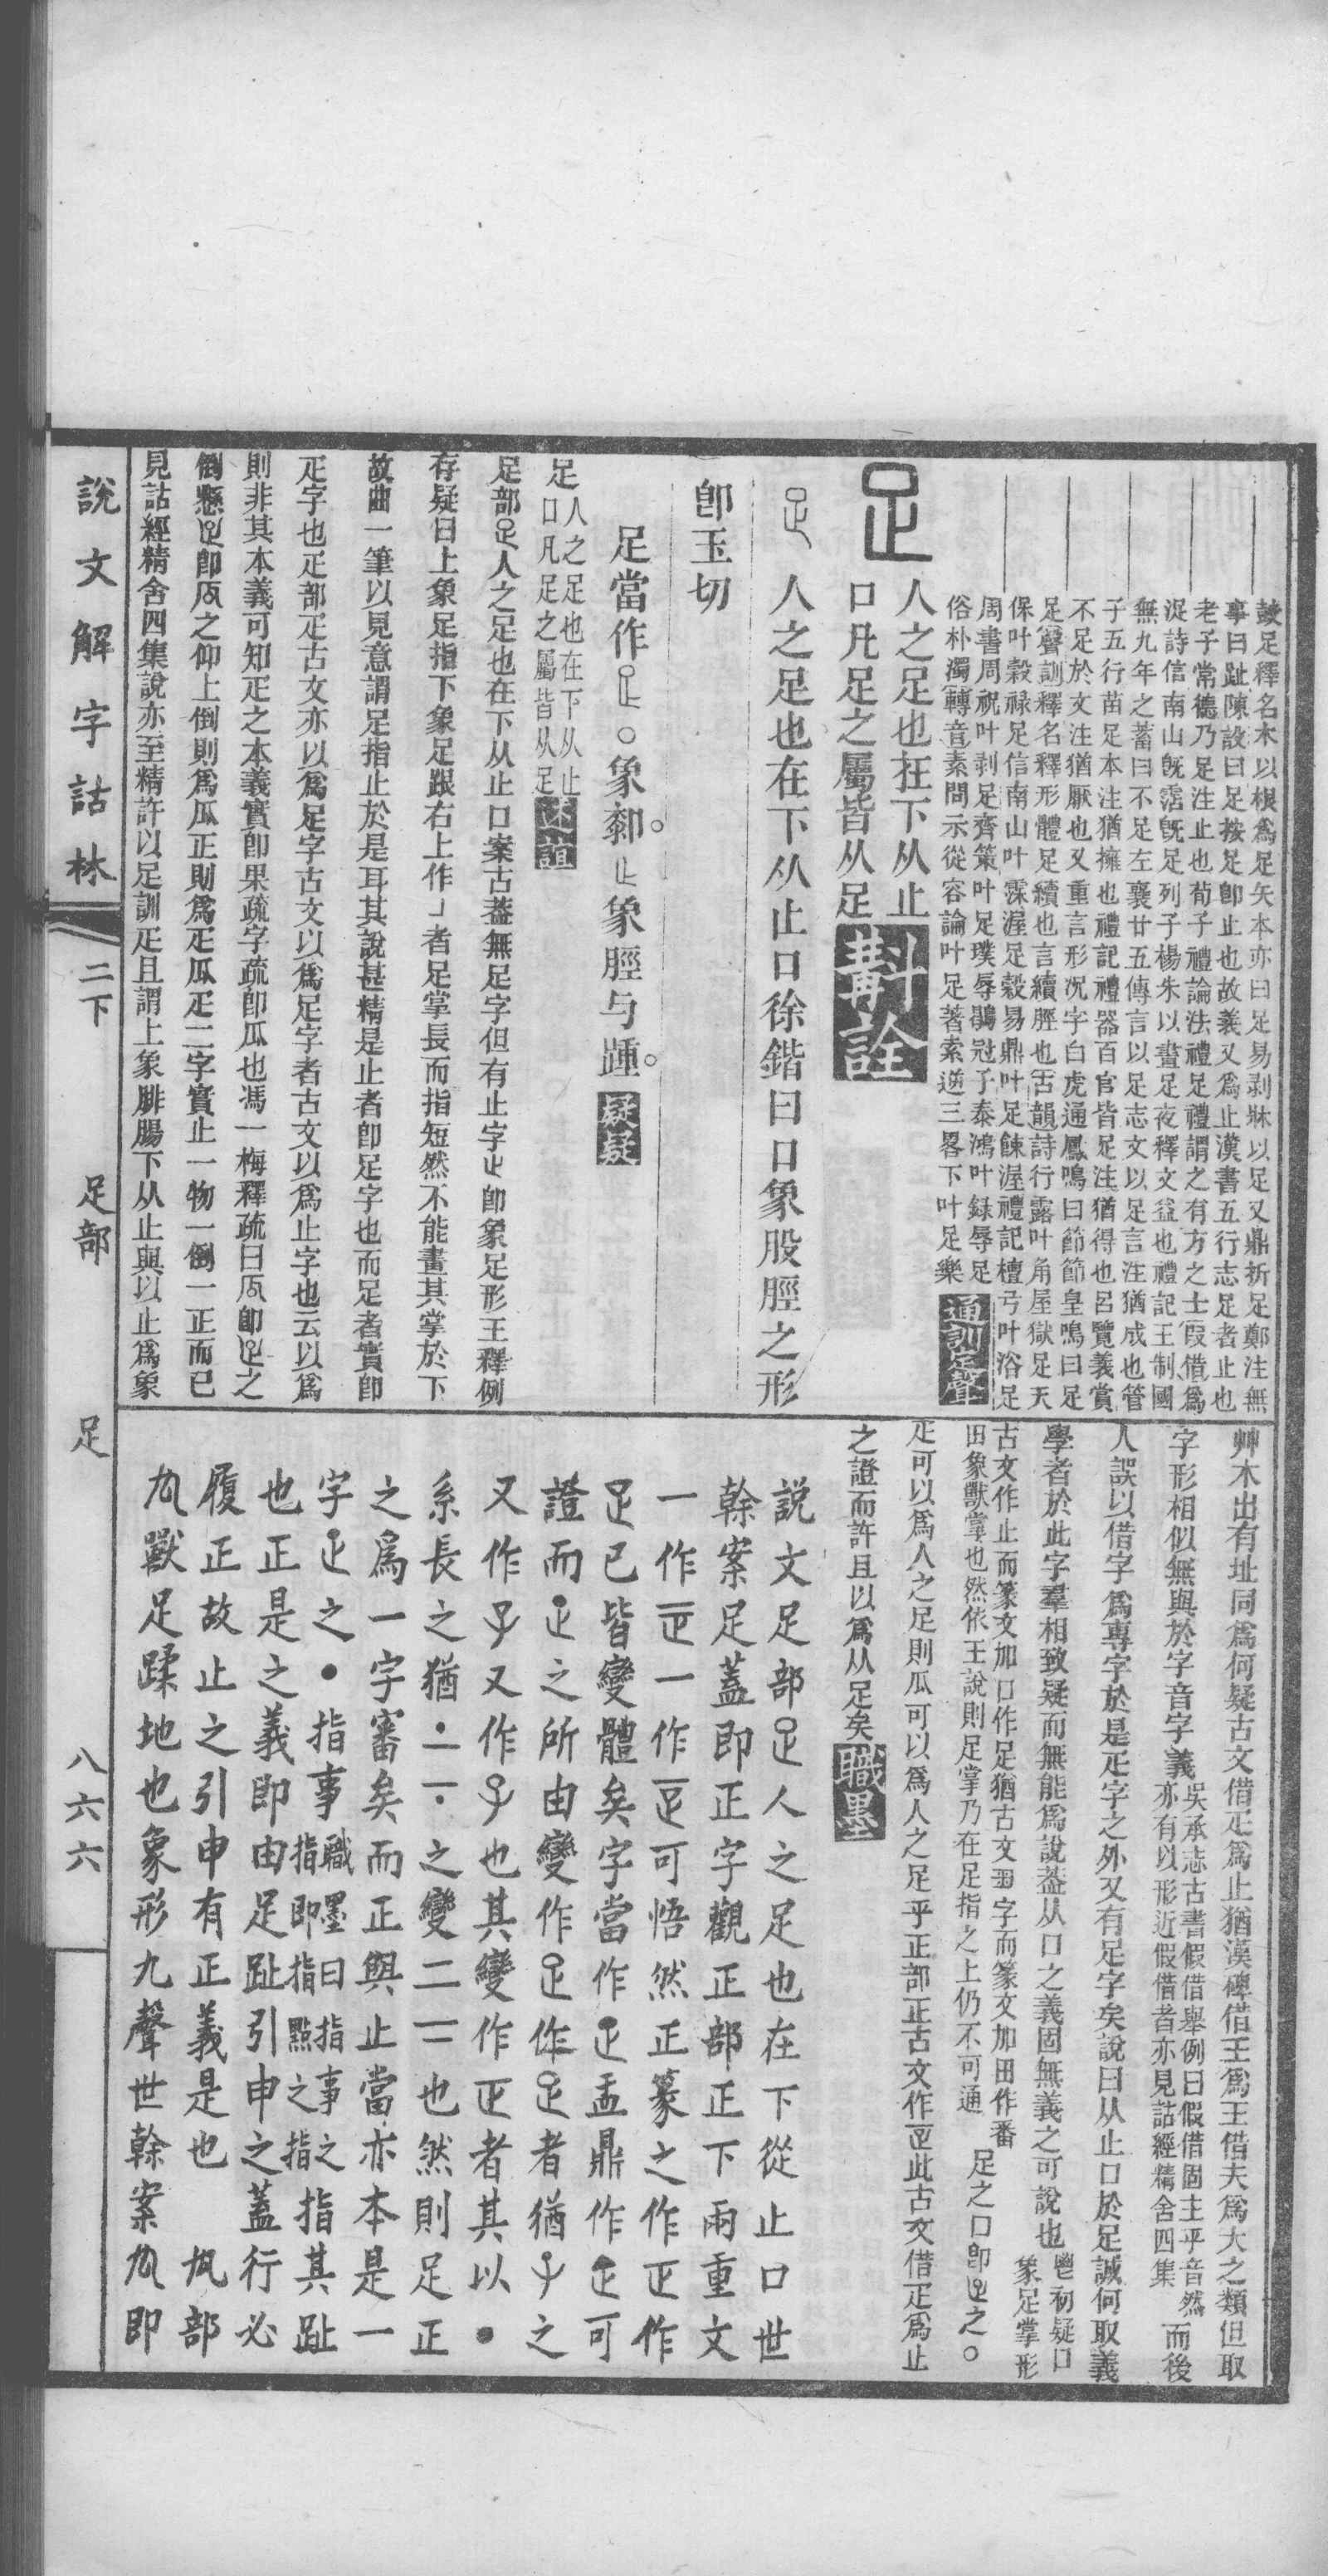 鼓足釋名木以根爲足矢本亦曰足易剥牀以足又鼎折足鄭注無
事曰趾陳設曰足按足卽止也故義又爲止漢書五行志足者止也
老子常德乃足注止也荀子禮論法禮足禮謂之有方之士叚借爲
浞詩信南山旣霑旣足列子楊朱以晝足夜釋文益也禮記王制國
無九年之蓄曰不足左襄廿五傳言以足志文以足言注猶成也管
子五行苗足本注猶擁也禮記禮器百官皆足注猶得也呂覽義賞
不足於文注猶厭也又重言形況字白虎通鳳鳴曰節節皇鳴曰足
足聲訓釋名釋形體足續也言續脛也古韻詩行露叶角屋獄足天
保叶穀祿足信南山叶霂渥足穀易鼎叶足餗渥禮記檀弓叶浴足
周書周祝叶剥足齊策叶足璞辱鶡冠子泰鴻叶録辱足
俗朴濁轉音素問示從容論叶足著索逆三畧下叶足樂通訓定聲
足人之足也在下从止
口凡足之屬皆从足斠詮
人之足也在下从止口徐鍇曰口象股脛之形
卽玉切
足當作○象厀止象脛与踵疑疑
足人之足也在下从止
口凡足之屬皆从足述誼
足部足人之足也在下从止口案古葢無足字但有止字止卽象足形王釋例
存疑曰上象足指下象足跟右上作者足掌長而指短然不能畫其掌於下
故曲一筆以見意謂足指止於是耳其說甚精是止者卽足字也而足者實卽
疋字也疋部疋古文亦以爲足字古文以爲足字者古文以爲止字也云以爲
則非其本義可知疋之本義實卽果疏字疏卽瓜也馮一梅釋疏曰卽之
倒懸卽之仰上倒則爲瓜正則爲疋瓜疋二字實止一物一倒一正而已
見詁經精舍四集說亦至精許以足訓疋且謂上象腓腸下从止與以止爲象
艸木出有址同爲何疑古文借疋爲止猶漢碑借王爲玉借夫爲大之類但取
字形相似無與於字音字義吳承志古書假借舉例曰假借固主乎音然
亦有以形近假借者亦見詁經精舍四集而後
人誤以借字爲專字於是疋字之外又有足字矣說曰从止口於足誠何取義
學者於此字羣相致疑而無能爲說葢从口之義固無義之可說也鬯初疑口
象足掌形
古文作止而篆文加口作足猶古文字而篆文加田作番
田象獸掌也然依王說則足掌乃在足指之上仍不可通足之口卽之○
疋可以爲人之足則瓜可以爲人之足乎正部正古文作此古文借疋爲止
之證而許且以爲从足矣職墨
說文足部足人之足也在下從止口世
榦案足蓋即正字觀正部正下兩重文
一作一作可悟然正篆之作正作
足已皆變體矣字當作盂鼎作可
證而之所由變作作者猶子之
又作子又作子也其變作正者其以•
系長之猶•一一•之變二一二也然則足正
之爲一字審矣而正與止當亦本是一
字之•指事職墨曰指事之
指即指點之指指其趾
也正是之義即由足趾引申之蓋行必
履正故止之引申有正義是也 厹部
厹獸足蹂地也象形九聲世榦案厹即
說文解字詁林 二下 足部 足 八六六